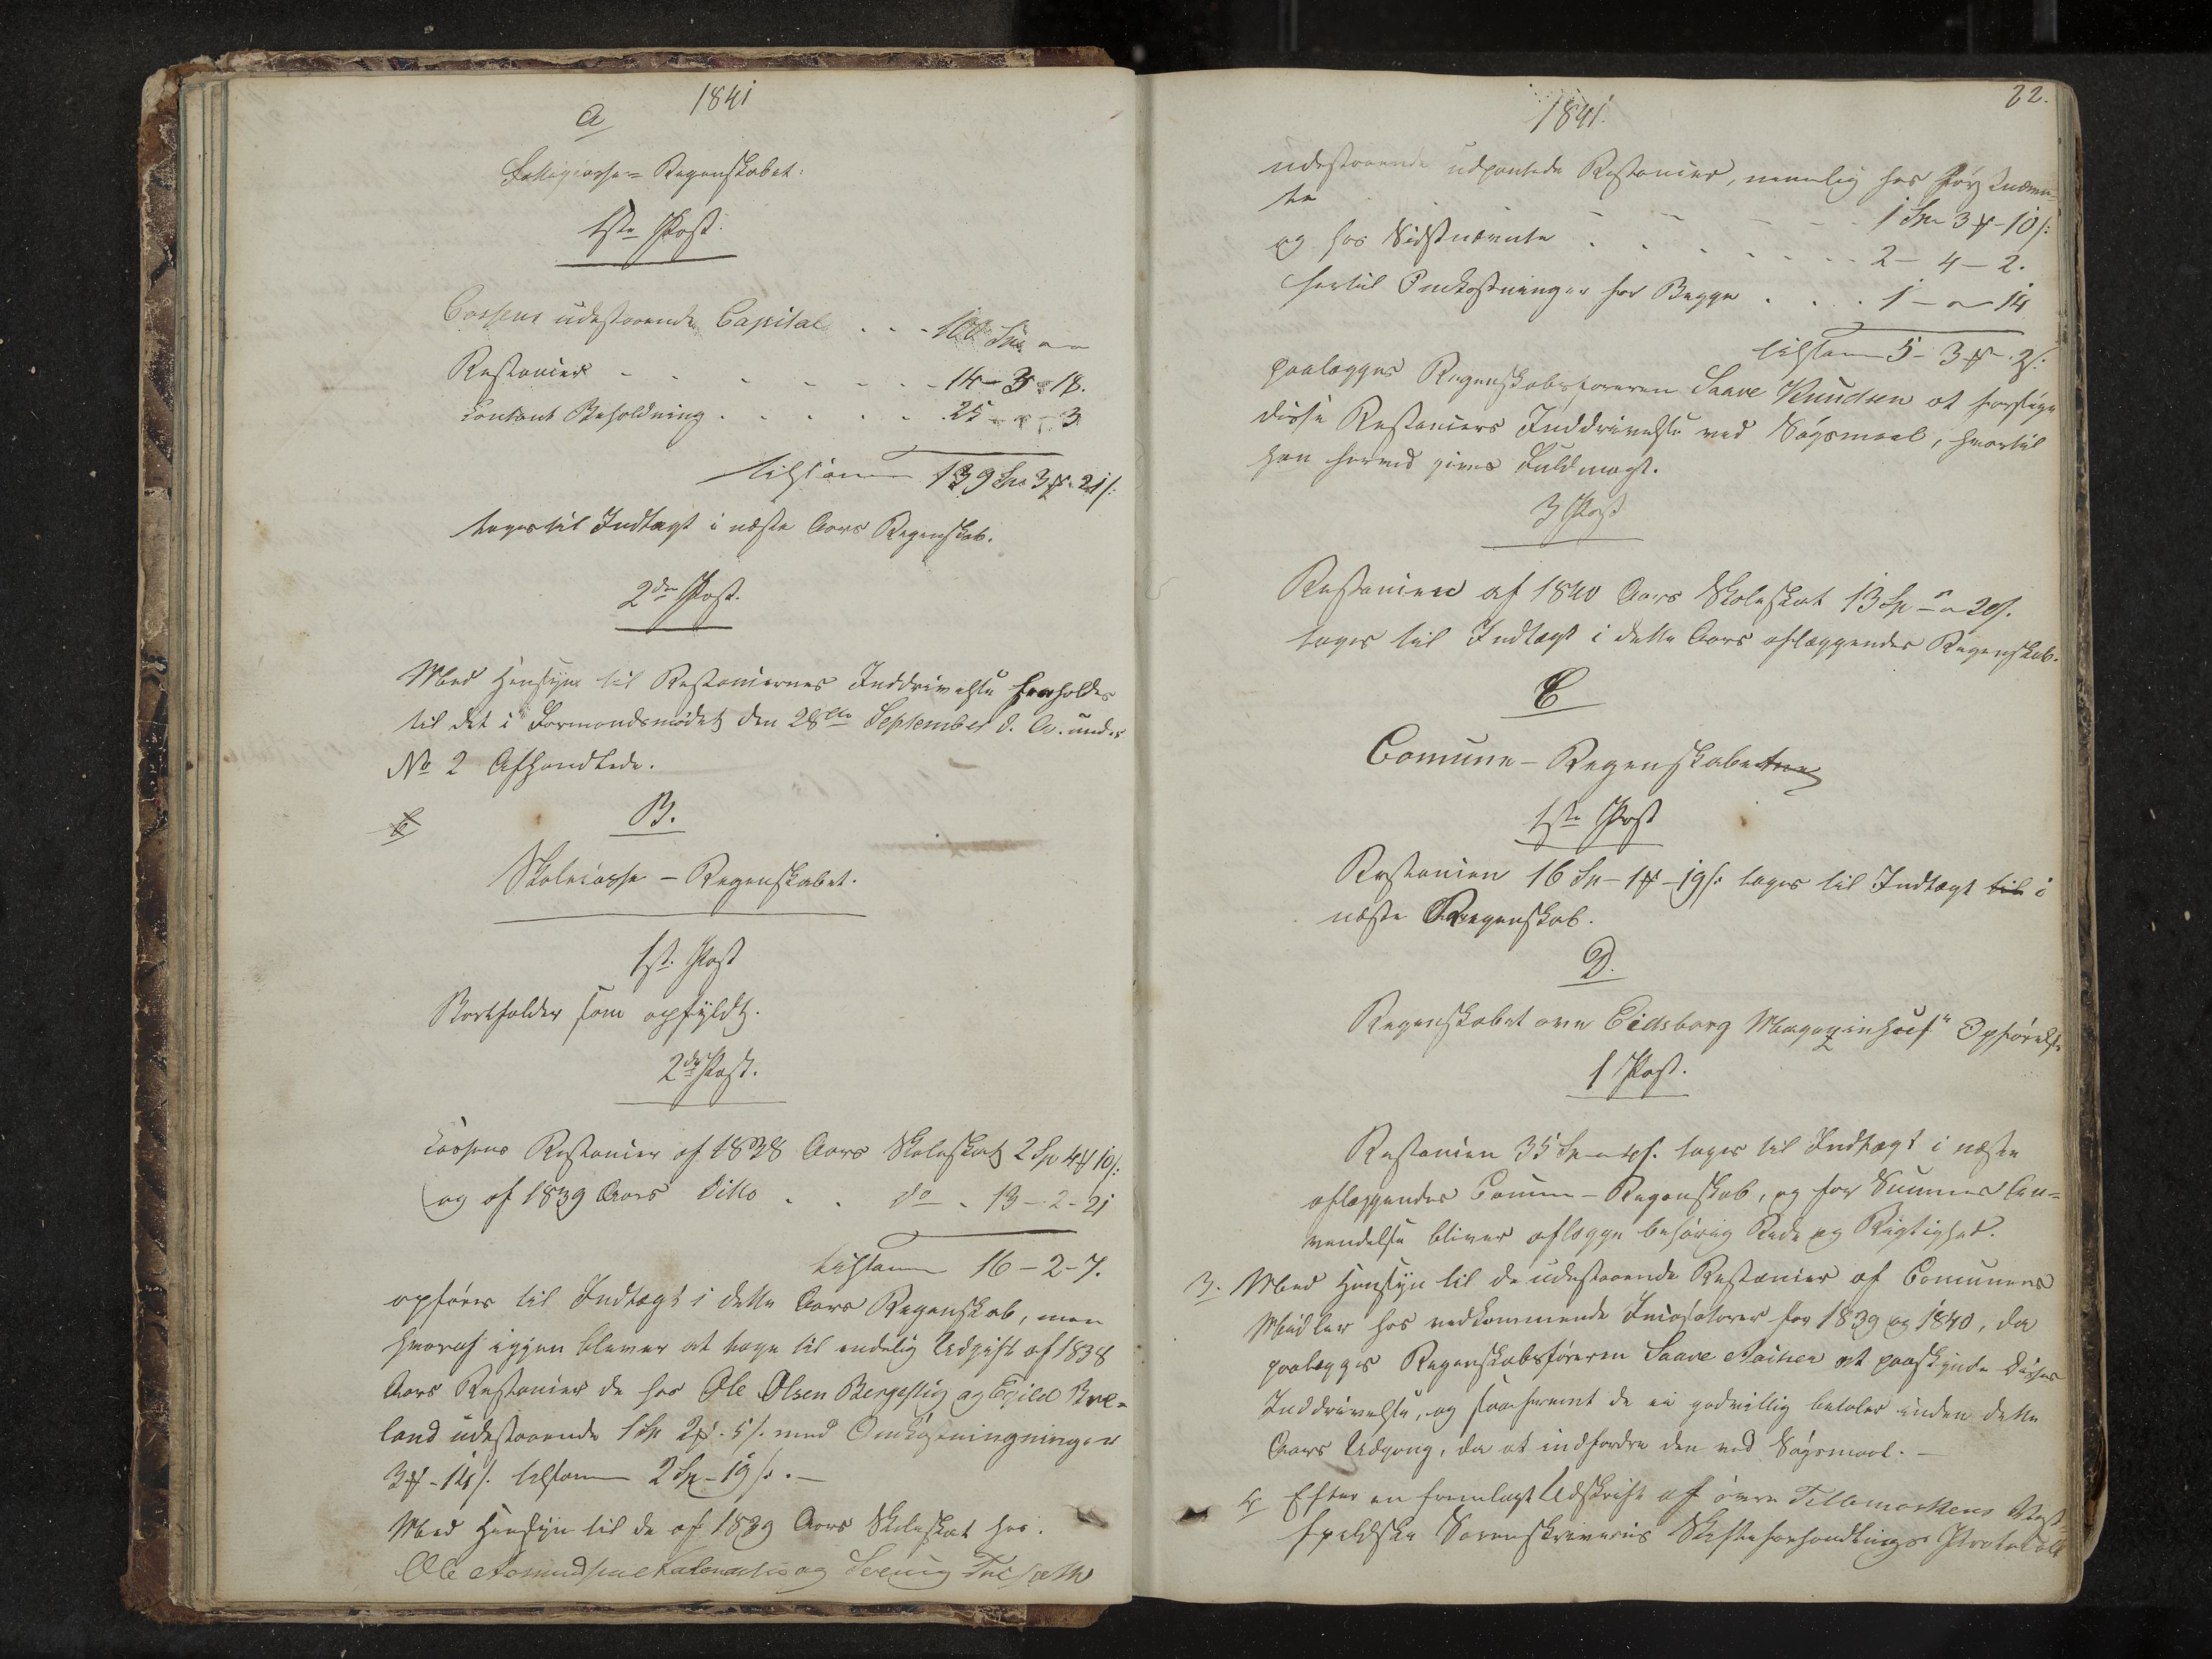 1841
A
Fattigcasse-Regenskabet:
1ste Post.
Cassens udestaaende Capital . . . 100 Spd " "
Restancier . . . . . . 14 - 3 - 18.
Contant Beholdning . . . . . . 25 - " - 3
tilsammen 139 Spd 3 ort 21 s:
tages til Indtægt i næste Aars Regenskab.
2den Post.
Med Hensyn til Restanciernes Inddrivelse henholdes
til det i Formandsmødet den 28de September d. A. under
No 2 Afhandlede.
B.
Skolecasse-Regenskabet.
1ste Post
Bortfalder som opfyldt.
2den Post.
Cassens Restancier af 1838 Aars Skoleskat 2 Sp 4 ort 10 s:
og af 1839 Aars Ditto . . do . 13 - 2 - 21
tilsammen 16 - 2 - 7.
opføres til Indtægt i dette Aars Regenskab, men
hvoraf igjen bliver at tage til endelig Udgift af 1838
Aars Restancier de hos Ole Olsen og Egild
land udestaaende 1 Sp 2 ort 5 s. med Omkostningninger
3 ort - 14 s. tilsammen 2 Sp - 19 s. -
Med Hensyn til de af 1839 Aars Skoleskat hos
Ole Aamundsen og
1841.
22.
udestaaende udpantede Restancier, nemlig hos Førstnævn-
te . . . . 1 Spd 3 ort - 10 s:
og hos Sidstnævnte . . . . . 2 - 4 - 2.
hertil Omkostninger for Begge . . . 1 - " - 14
tilsammen 5 - 3 ort - 2 s.
paalægges Regenskabsføreren Saave Knudsen at forsøge
disse Restanciers Inddrivelse ved Søgsmaal, hvortil
han herved gives Fuldmagt.
3 Post
Restancien af 1840 Aars Skoleskat 13 Sp - " - 20 s.
tages til Indtægt i dette Aars aflæggendes Regenskab.
C
Comune-Regenskaberne
1ste Post
Restancien 16 Sp - 1 ort - 19 s: tages til Indtægt til i
næste Regenskab.
D.
Regenskabet over Eidsborg Magazinhuus" Opførelse
1 Post.
Restancien 35 Sp tages til Indtægt i næste
aflæggendes Comune-Regenskab, og for Summens An-
vendelse bliver aflægge behørig Rede og Rigtighed.
3. Med Hensyn til de udestaaende Restancier af Comunens
Midler hos vedkommende Incasatorer for 1839 og 1840, da
paalægges Regenskabsføreren Saave at paaskynde Disses
Inddrivelse, og saafremt de ei godvillig betales inden dette
Aars Udgang, da at indfordre den ved Søgsmaal. -
4 Efter en fremlagt Udskrift af øvre Tellemarkens Vest-
fjeldske Sorenskriveries Skifteforhandlings Protokoll